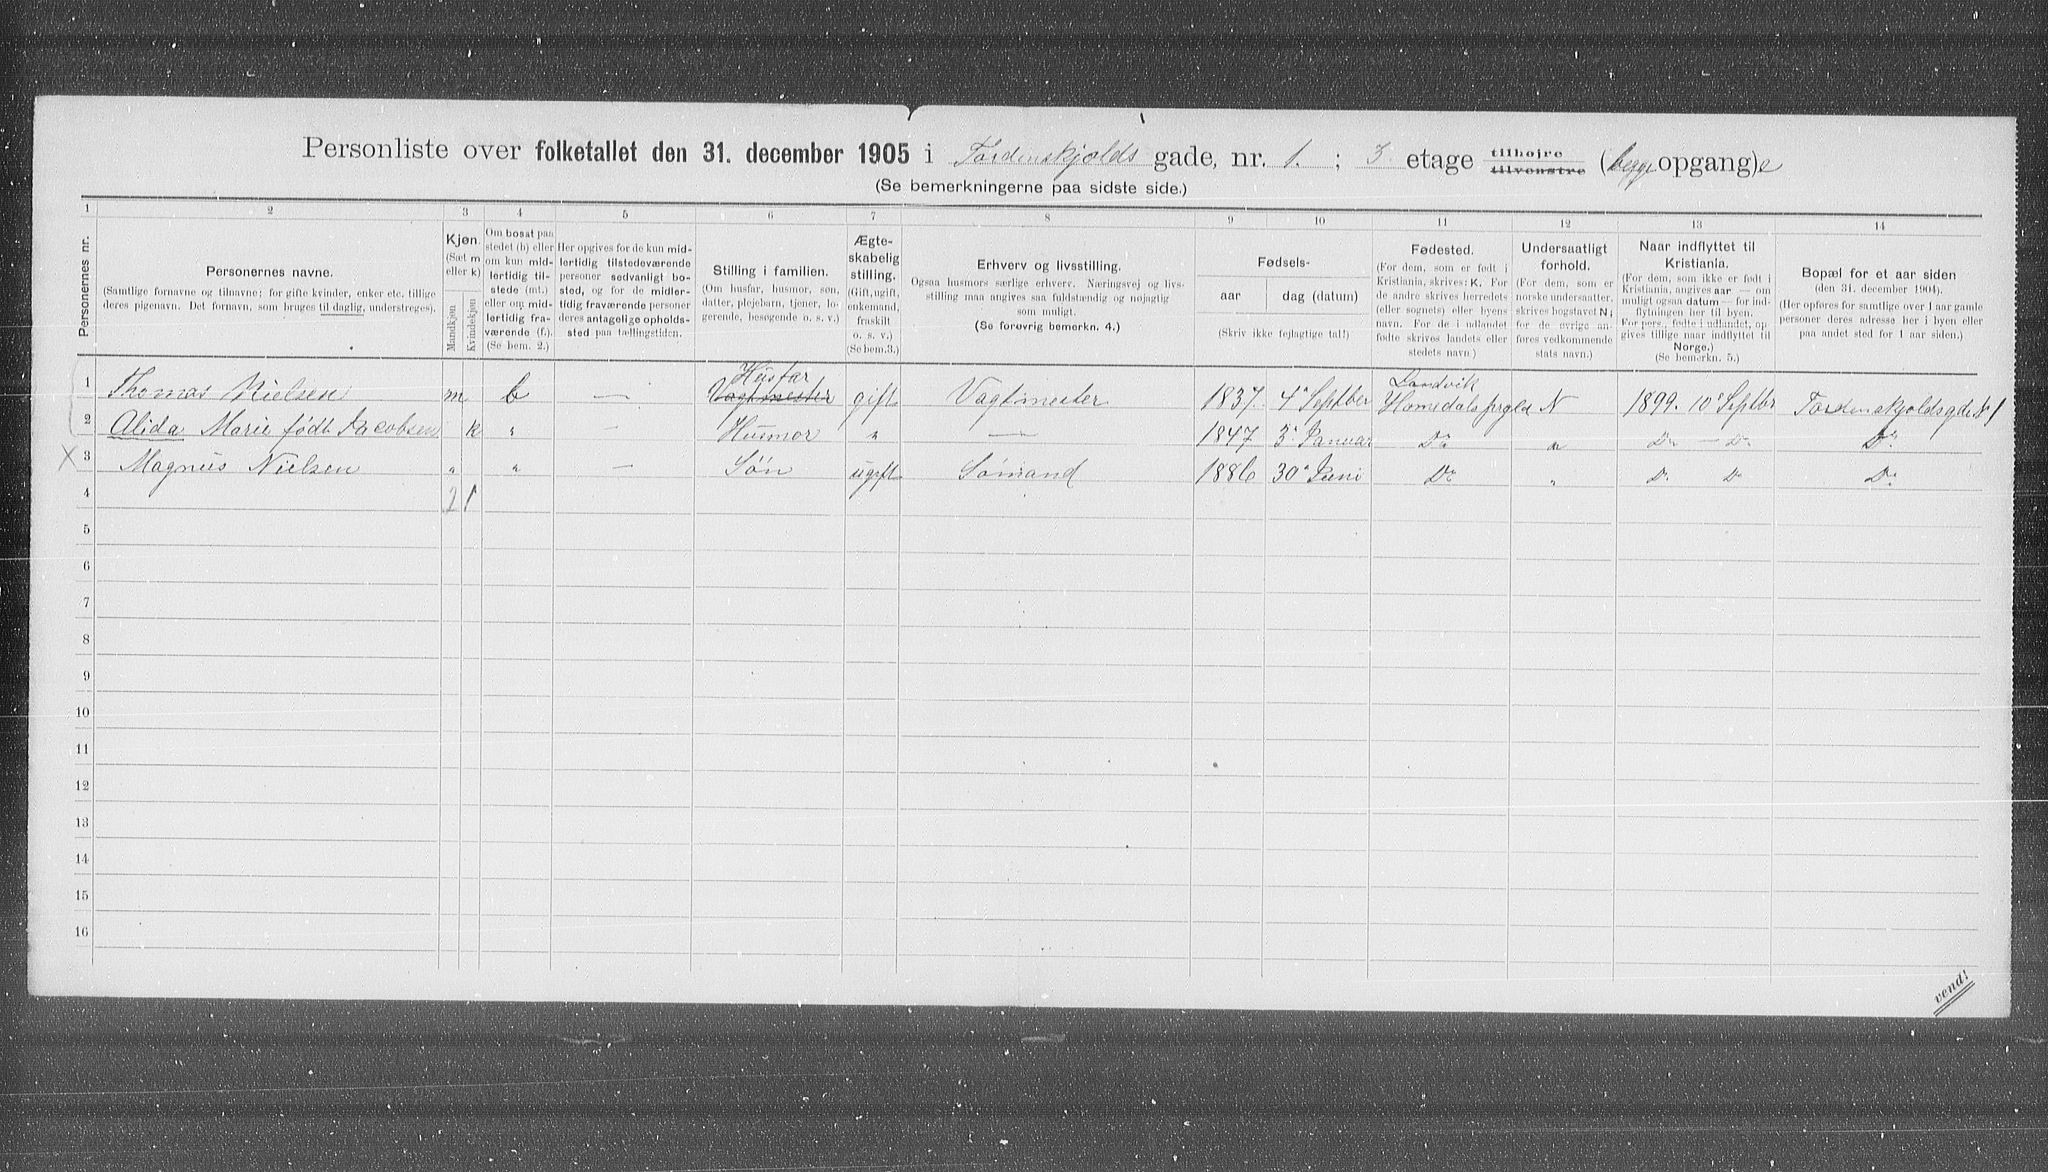 Personliste over folketallet den 31. december 1905 i Tordenskjolds gade, nr. 1. ; 3. etage tilhøire tilvenstre (begge opgang)e
(Se bemerkningerne paa sidste side.)
1 2 3 4 5 6 7 8 9 10 11 12 13 14
Personernes nr.
Personernes navne.
(Samtlige fornavne og tilnavne; for gifte kvinder, enker etc. tillige
deres pigenavn. Det fornavn, som bruges til daglig, understreges).
Kjøn.
(Sæt m
eller k)
Mandkjøn
Kvindekjøn
Om bosat paa
stedet (b) eller
om kun mid-
lertidig til-
stede (mt.)
eller om mid-
lertidig fra-
værende (f.).
(Se bem. 2.)
Her opgives for de kun mid-
lertidig tilstedeværende
personer sedvanligt bo-
sted, og for de midler-
tidig fraværende personer
deres antagelige opholds-
sted paa tællingstiden.
Stilling i familien.
(Om husfar, husmor, søn,
datter, plejebarn, tjener, lo-
gerende, besøgende o. s. v.)
Ægte-
skabelig
stilling.
(Gift, ugift,
enkemand,
fraskilt
o. s. v.)
(Se bem.3.)
Erhverv og livsstilling.
Ogsaa husmors særlige erhverv. Næringsvej og livs-
stilling maa angives saa fuldstændig og nøjagtig
som muligt.
(Se forøvrig bemerkn. 4.)
Fødsels-
aar dag (datum)
(Skriv ikke fejlagtige tal!)
Fødested.
(For dem, som er født i
Kristiania, skrives: K. For
de andre skrives herredets
(eller sognets) eller byens
navn. For de i udlandet
fødte skrives landets eller
stedets navn.)
Undersaatligt
forhold.
(For dem, som er
norske undersaatter,
skrives bogstavet N;
for de øvrige an-
føres vedkommende
stats navn.)
Naar indflyttet til
Kristiania.
(For dem, som ikke er født i
Kristiania, angives aar — om
muligt ogsaa datum — for ind-
flytningen her til byen.
For pers., fødte i udlandet, op-
gives tillige naar indflyttet til
Norge.)
(Se bemerkn. 5.)
Bopæl for et aar siden
(den 31. december 1904).
(Her opføres for samtlige over 1 aar gamle
personer deres adresse her i byen eller
paa andet sted for 1 aar siden.)
Husfar Landvik
1 Thomas Nielsen m b — Vagtmester gift Vagtmester 1837. 4' Septber Homedals prgld N 1899. 10' Septbr Tordenskjoldsgde No 1
2 Alida Marie født Jacobsen k " — Husmor " — 1847 3' Januar Do " Do — Do Do
X 3 Magnus Nielsen " " — Søn ugift Sømand 1886 30' Juni Do " Do Do Do
4 2 1
5
6
7
8
9
10
11
12
13
14
15
16
vend!